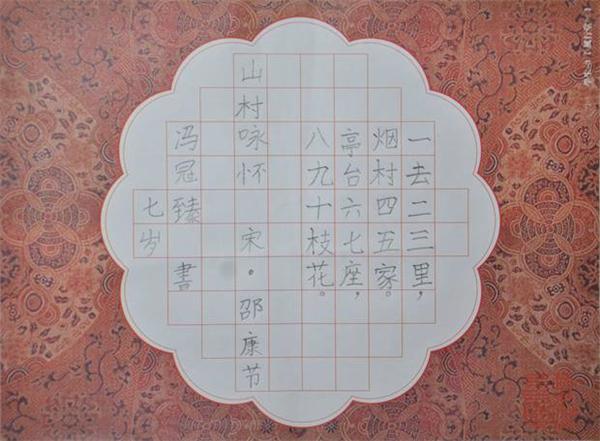 一去二三里，
烟村四五家。
亭台六七座，
八九十枝花。
山村咏怀 宋·邵康节
冯冠臻 書
七岁